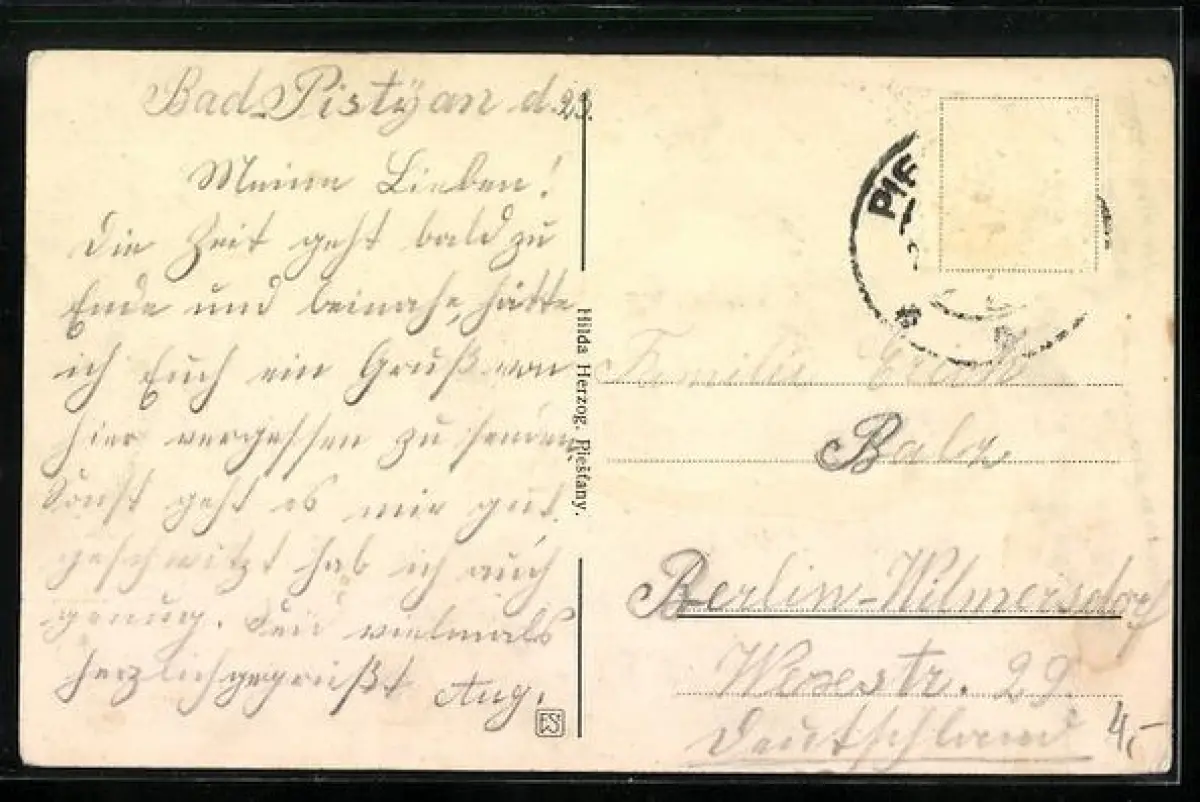 Bad Pistÿan d. 23.
Meine Lieben!
Die Zeit geht bald zu
Ende und beinahe hätte
ich Euch ein Gruß von
hier vergessen zu senden
Sonst geht es mir gut
geschwitzt hab ich auch
genug. Seid vielmals
herzlich gegrüßt Aug.
Hilda Herzog, Piešťany.
PIE
Familie
Balz
Berlin-Wilmersdorf
29.
Deutschland
4,-